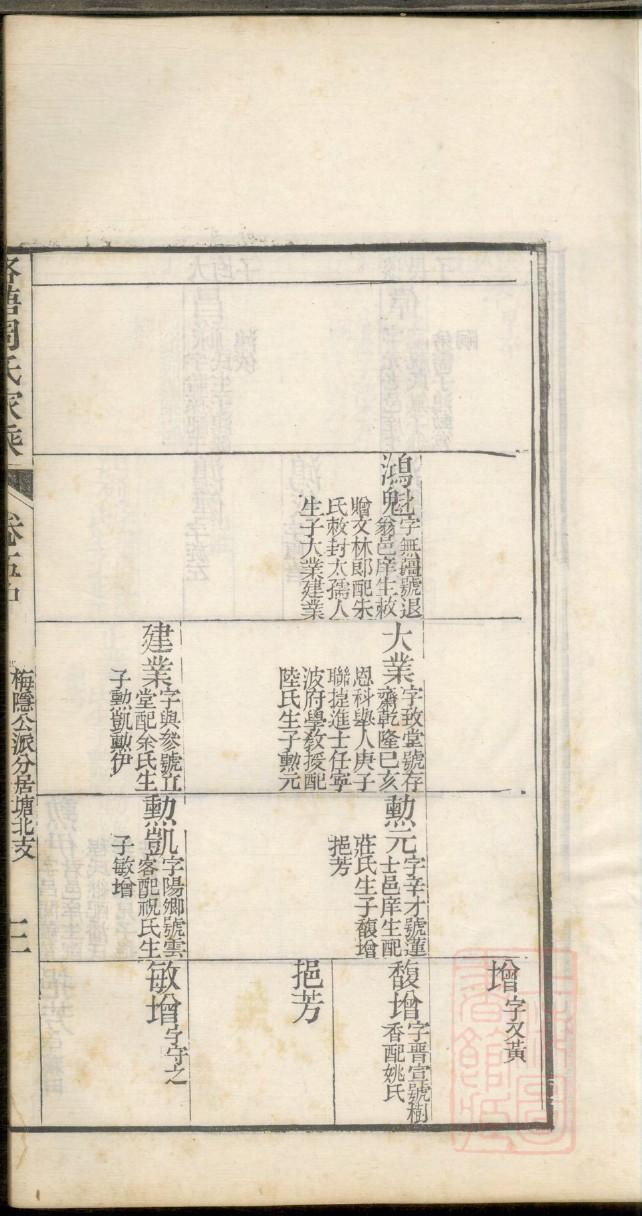 鴻魁
字無疆號退
翁邑庠生敕
贈文林郎配朱
氏敕封太孺人
生子大業建業
大業
字致堂號存
齋乾隆己亥
恩科舉人庚子
聯捷進士任寧
波府學教授配
陸氏生子勲元
建業
字與參號立
堂配余氏生
子勲凱勲伊
勲元
字辛才號蓮
士邑庠生配
莊氏生子馥增
挹芳
勲凱
字陽鄉號雲
客配祝氏生
子敏增
增
字又黃
馥增
字晋宣號樹
香配姚氏
挹芳
敏增
字守之
周氏家乘
卷五
梅隱公派分居塘北支
三